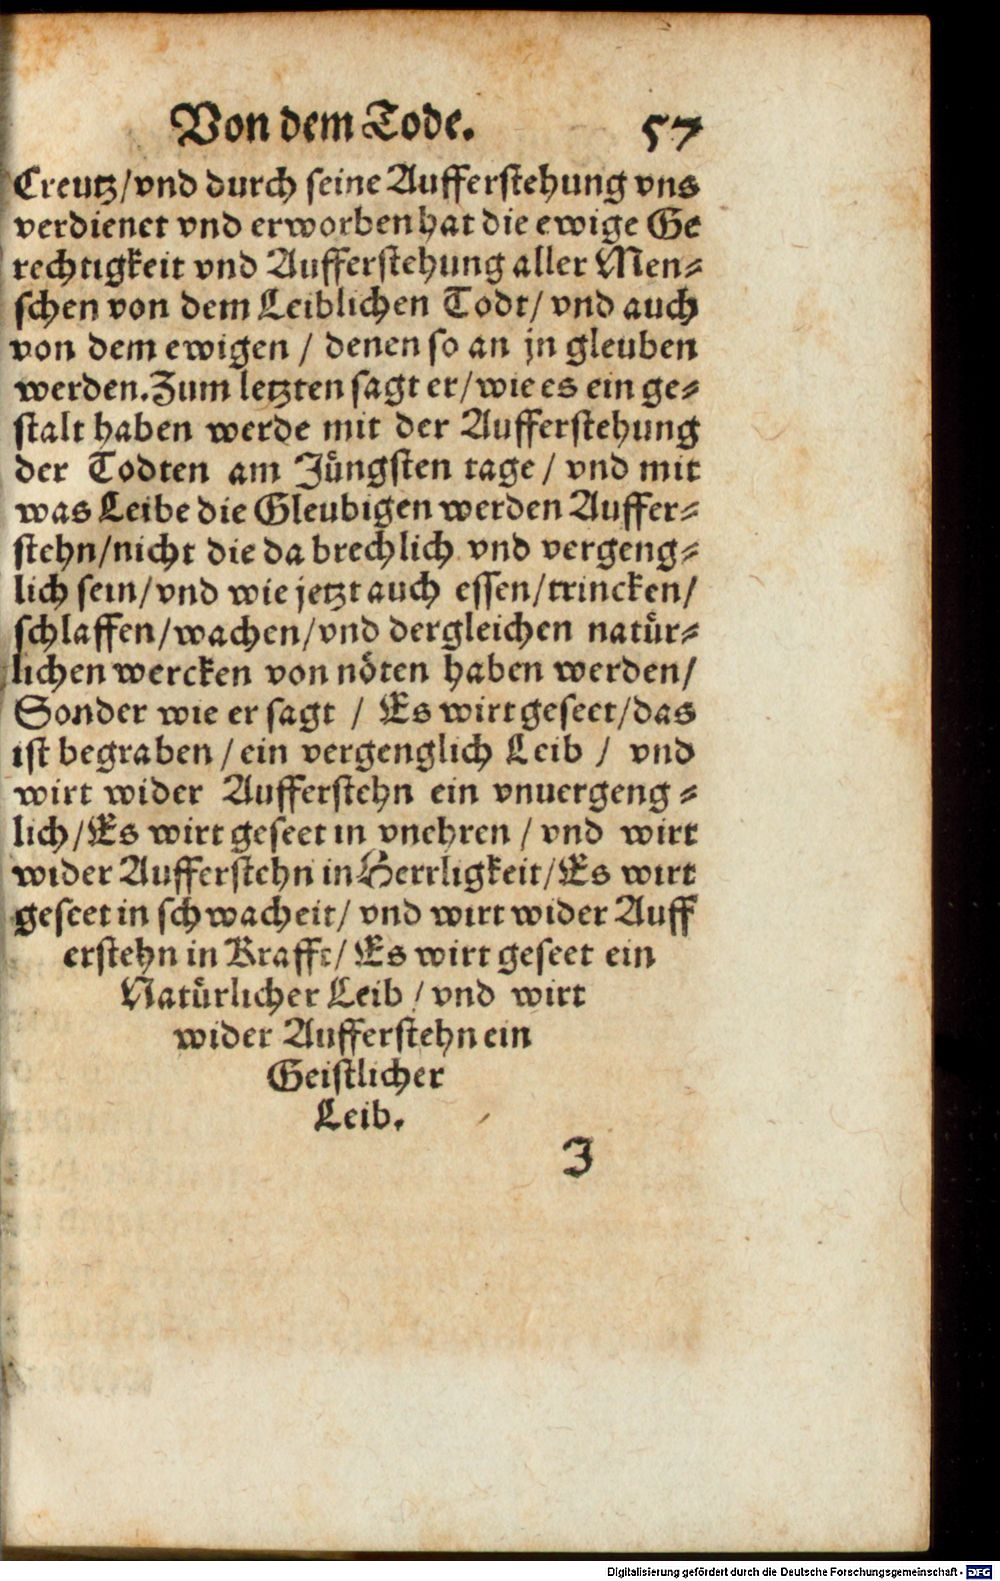 Von dem Tode. 57
Creutz/vnd durch seine Aufferstehung vns
verdienet vnd erworben hat die ewige Ge
rechtigkeit vnd Aufferstehung aller Men-
schen von dem Leiblichen Todt/ vnd auch
von dem ewigen / denen so an jn gleuben
werden. Zum letzten sagt er/wie es ein ge-
stalt haben werde mit der Aufferstehung
der Todten am Jüngsten tage / vnd mit
was Leibe die Gleubigen werden Auffer-
stehn/nicht die da brechlich vnd vergeng-
lich sein/vnd wie jetzt auch essen/trincken/
schlaffen/wachen/vnd dergleichen natür-
lichen wercken von nöten haben werden/
Sonder wie er sagt / Es wirt geseet/das
ist begraben / ein vergenglich Leib / vnd
wirt wider Aufferstehn ein vnuergeng-
lich/Es wirt geseet in vnehren / vnd wirt
wider Aufferstehn in Herrligkeit/Es wirt
geseet in schwacheit/ vnd wirt wider Auff
erstehn in Krafft/ Es wirt geseet ein
Natürlicher Leib / vnd wirt
wider Aufferstehn ein
Geistlicher
Leib.
J
Digitalisierung gefördert durch die Deutsche Forschungsgemeinschaft - DFG